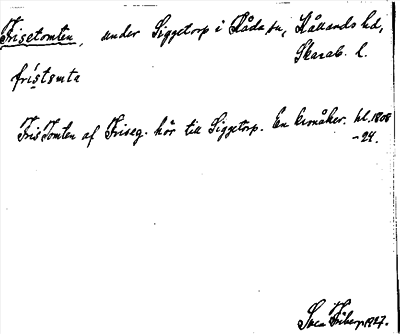 Frisetomten, under Siggetorp i Råda sn, Kållands hd,
Skarab. l.
frístɛmta
FrisTomten af Friseg. hör till Siggetorp. En kronåker. hl. 1808
-24.
Svea Friberg 1927.